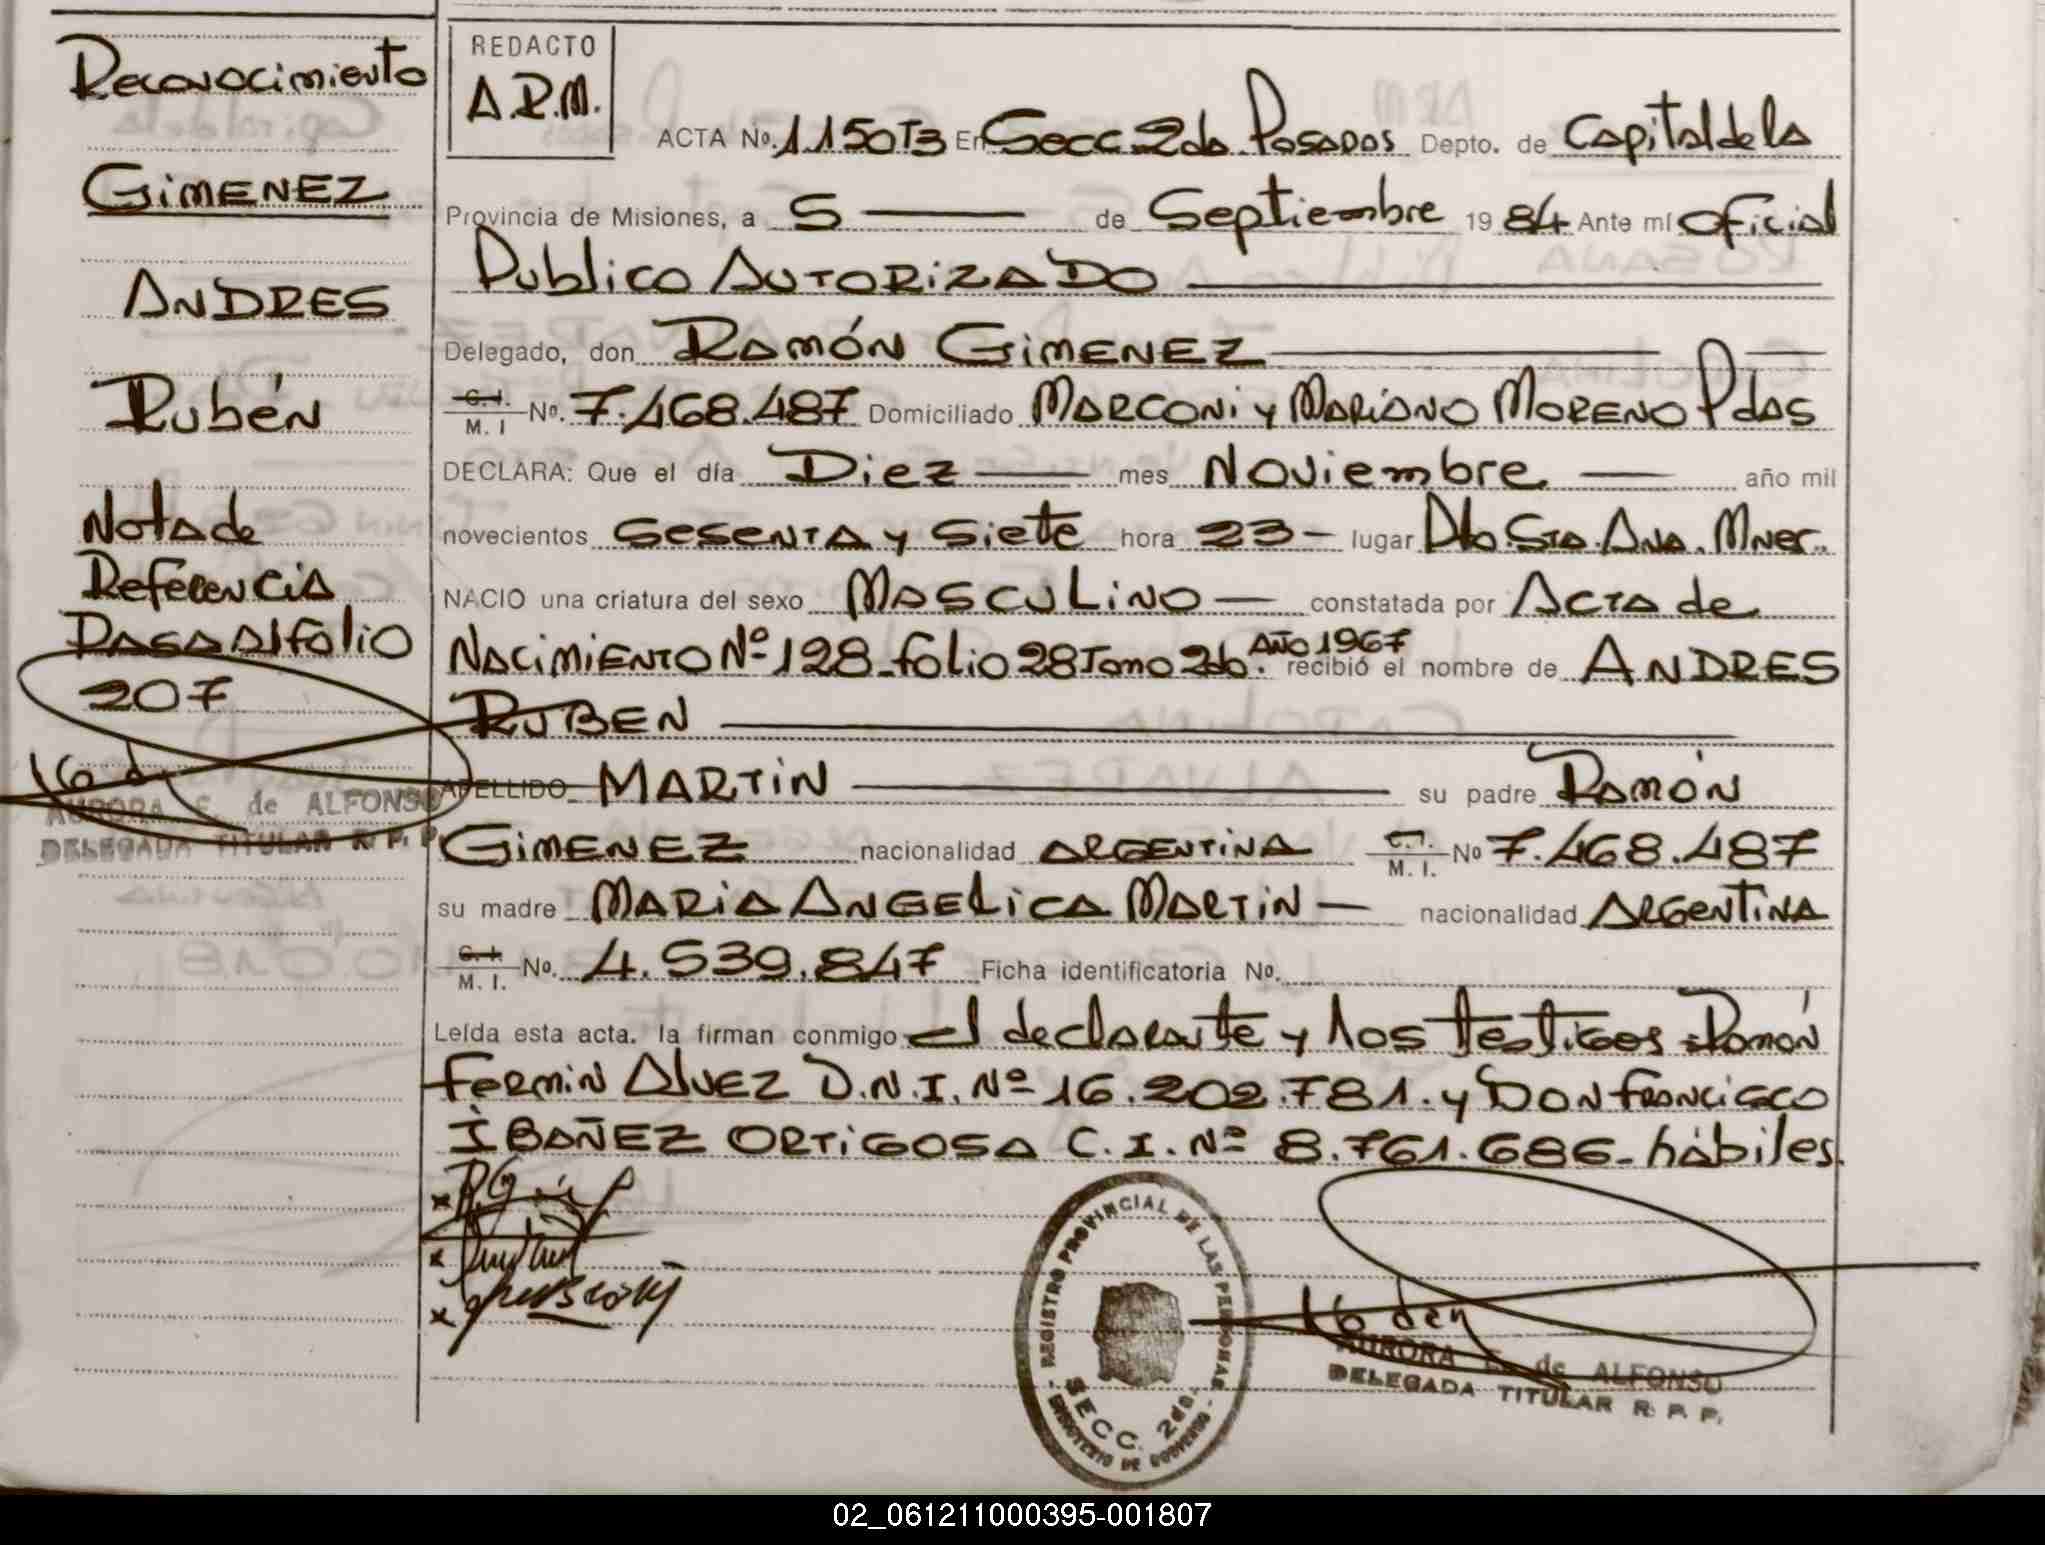 Reconocimiento
GIMENEZ
ANDRES
Rubén
Nota de
Referencia
Pasa al folio
207
AURORA E. de ALFONSO
DELEGADA TITULAR R. P. P.
REDACTO
A.R.M.
ACTA Nº. 1150 T3 En Secc. 2da Posadas Depto. de Capital de la
Provincia de Misiones, a 5 de Septiembre 1984 Ante mí Oficial
Publico AUTORIZADO
Delegado, don RAMÓN GIMENEZ
C. I. M. I Nº. 7.468.487 Domiciliado MARCONI y MARIANO MORENO Pdas
DECLARA: Que el día Diez mes Noviembre año mil
novecientos SESENTA y Siete hora 23 lugar Dto Sta. Ana. Mnes.
NACIO una criatura del sexo MASCULINO constatada por Acta de
NACIMIENTO Nº 128 folio 28 Tomo 2do. AÑO 1967 recibió el nombre de ANDRES
RUBEN
APELLIDO MARTIN su padre Ramón
GIMENEZ nacionalidad ARGENTINA C. I. M. I. Nº 7.468.487
su madre MARIA ANGELICA MARTIN nacionalidad ARGENTINA
C. I. M. I. Nº. 4.539.847 Ficha identificatoria Nº.
Leída esta acta. la firman conmigo el declarante y los testigos Ramón
Fermin Alvez D.N.I. Nº 16.202.781. y DON FRANCISCO
IBAÑEZ ORTIGOSA C.I. Nº 8.761.686 hábiles.
REGISTRO PROVINCIAL DE LAS PERSONAS
SECC. 2da.
MINISTERIO DE GOBIERNO
AURORA E. de ALFONSO
DELEGADA TITULAR R. P. P.
02_061211000395-001807